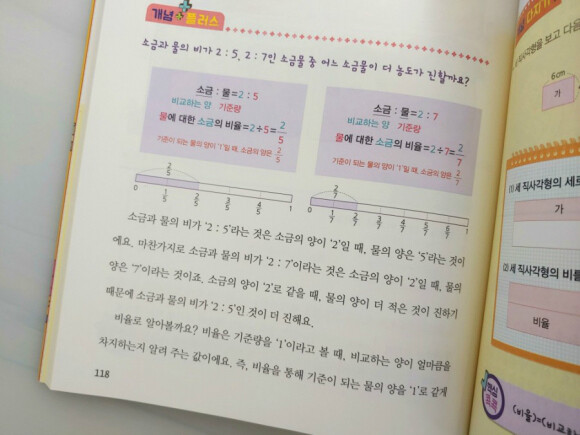 개념 + 플러스
소금과 물의 비가 2 : 5, 2 : 7인 소금물 중 어느 소금물이 더 농도가 진할까요?
소금 : 물=2 : 5
비교하는 양 기준량
물에 대한 소금의 비율=2÷5=2/5
기준이 되는 물의 양이 '1'일 때, 소금의 양은 2/5
2/5
0 1/5 2/5 3/5 4/5 1
소금 : 물=2 : 7
비교하는 양 기준량
물에 대한 소금의 비율=2÷7=2/7
기준이 되는 물의 양이 '1'일 때, 소금의 양은 2/7
2/7
0 1/7 2/7 3/7 4/7 5/7 6/7 1
소금과 물의 비가 '2 : 5'라는 것은 소금의 양이 '2'일 때, 물의 양은 '5'라는 것이
에요. 마찬가지로 소금과 물의 비가 '2 : 7'이라는 것은 소금의 양이 '2'일 때, 물의
양은 '7'이라는 것이죠. 소금의 양이 '2'로 같을 때, 물의 양이 더 적은 것이 진하기
때문에 소금과 물의 비가 '2 : 5'인 것이 더 진해요.
비율로 알아볼까요? 비율은 기준량을 '1'이라고 볼 때, 비교하는 양이 얼마큼을
차지하는지 알려 주는 값이에요. 즉, 비율을 통해 기준이 되는 물의 양을 '1'로 같게
118
다지기
직사각형을 보고 다음
6cm
가
(1) 세 직사각형의 세로
가
(2) 세 직사각형의 비율
비율
핵심
(비율)=(비교하